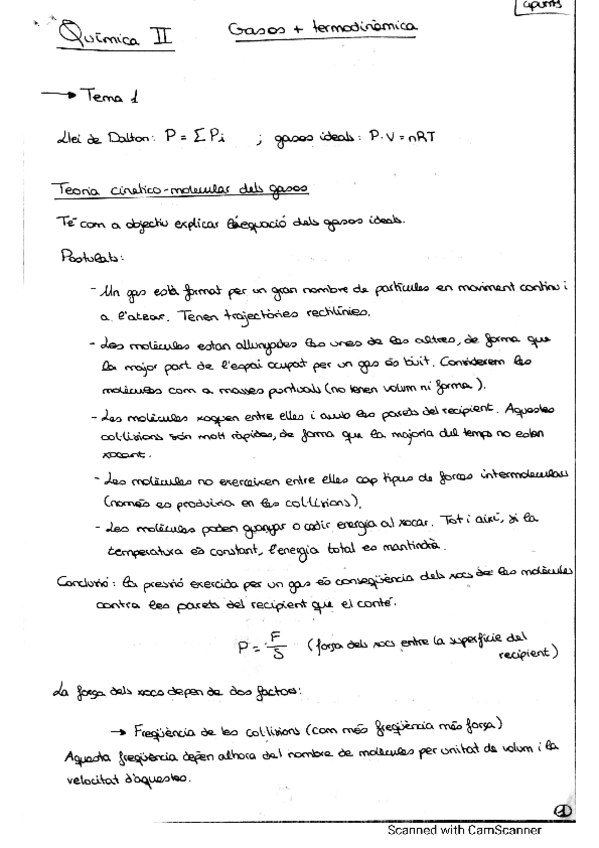 apunts
Química II
Gasos + termodinàmica
→ Tema 1
Llei de Dalton: P = Σ Pi ; gasos ideals: P·V = nRT
Teoria cinètico-molecular dels gasos
Té com a objectiu explicar l'equació dels gasos ideals.
Postulats:
- Un gas està format per un gran nombre de partícules en moviment continu i
a l'atzar. Tenen trajectòries rectilínies.
- Les molècules estan allunyades les unes de les altres, de forma que
la major part de l'espai ocupat per un gas és buit. Considerem les
molècules com a masses puntuals (no tenen volum ni forma).
- Les molècules xoquen entre elles i amb les parets del recipient. Aquestes
col·lisions són molt ràpides, de forma que la majoria del temps no estan
xocant.
- Les molècules no exerceixen entre elles cap tipus de forces intermoleculars
(només es produiria en les col·lisions).
- Les molècules poden guanyar o cedir energia al xocar. Tot i així, si la
temperatura és constant, l'energia total es mantindrà.
Conclusió: la pressió exercida per un gas és conseqüència dels xocs de les molècules
contra les parets del recipient que el conté.
P = F/S (força dels xocs entre la superfície del
recipient)
La força dels xocs depèn de dos factors:
→ Freqüència de les col·lisions (com més freqüència més força)
Aquesta freqüència depèn alhora del nombre de molècules per unitat de volum i la
velocitat d'aquestes.
1
Scanned with CamScanner